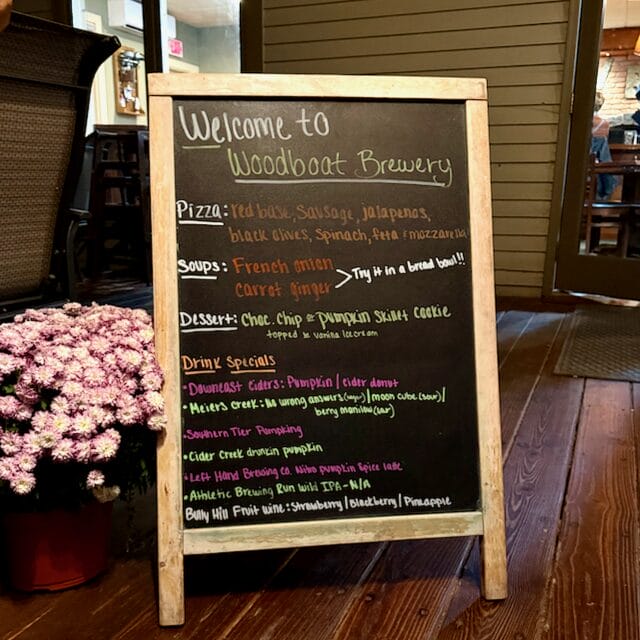 Welcome to
Woodboat Brewery
Pizza: red base, Sausage, jalapenos,
black olives, Spinach, feta & mozzarella
Soups: French onion
Carrot ginger
Try it in a bread bowl!!
Dessert: Choc. Chip & pumpkin Skillet Cookie
topped w vanilla ice cream
Drink Specials
• Downeast Ciders: Pumpkin / cider donut
• Meiers Creek: No wrong answers / moon cube (sour) /
berry manilow
• Southern Tier Pumking
• Cider Creek pumpkin
• Left Hand Brewing co. Nitro pumpkin Spice latte
• Athletic Brewing Run Wild IPA - N/A
Bully Hill Fruit Wine: Strawberry / Blackberry / Pineapple